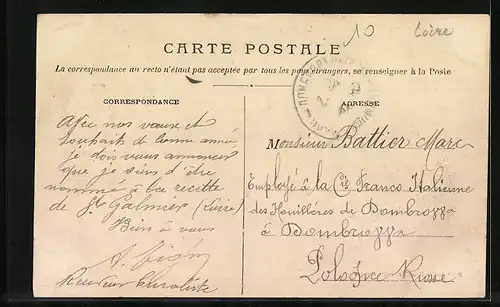 10 Loire
CARTE POSTALE
La correspondance au recto n'étant pas acceptée par tous les pays étrangers, se renseigner à la Poste
CORRESPONDANCE
Avec nos vœux et
souhait de bonne année,
je dois vous annoncer
que je viens d'être
nommé à la recette
de St Galmier (Loire)
Bien à vous
A.
Receveur
ADRESSE
Monsieur Battier Marc
Employé à la Cie Franco Italienne
des Houillères de Dombrowa
à Dombrowa
Pologne Russe